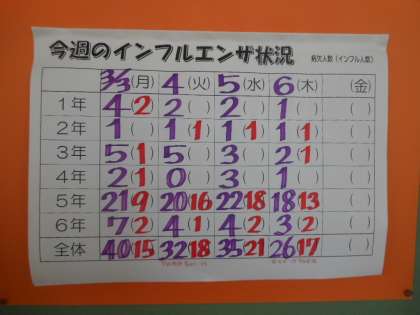 今週のインフルエンザ状況
病欠人数(インフル人数)
3/3(月) 4(火) 5(水) 6(木) (金)
1年 4(2 2( ) 2( ) 1( ) ( )
2年 1( ) 1(1 1(1 1(1 ( )
3年 5(1 5( ) 3( ) 2(1 ( )
4年 2(1 0( ) 3( ) 1( ) ( )
5年 21(9 20(16 22(18 18(13 ( )
6年 7(2 4(1 4(2 3(2 ( )
全体 40(15 32(18 35(21 26(17 ( )